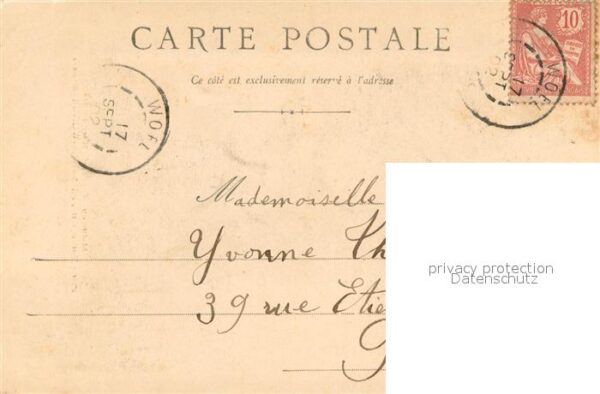 CARTE POSTALE
10
Ce côté est exclusivement réservé à l'adresse
17
SEPT
17
SEPT
Mademoiselle
Yvonne Th
39 rue Etie
privacy protection
Datenschutz